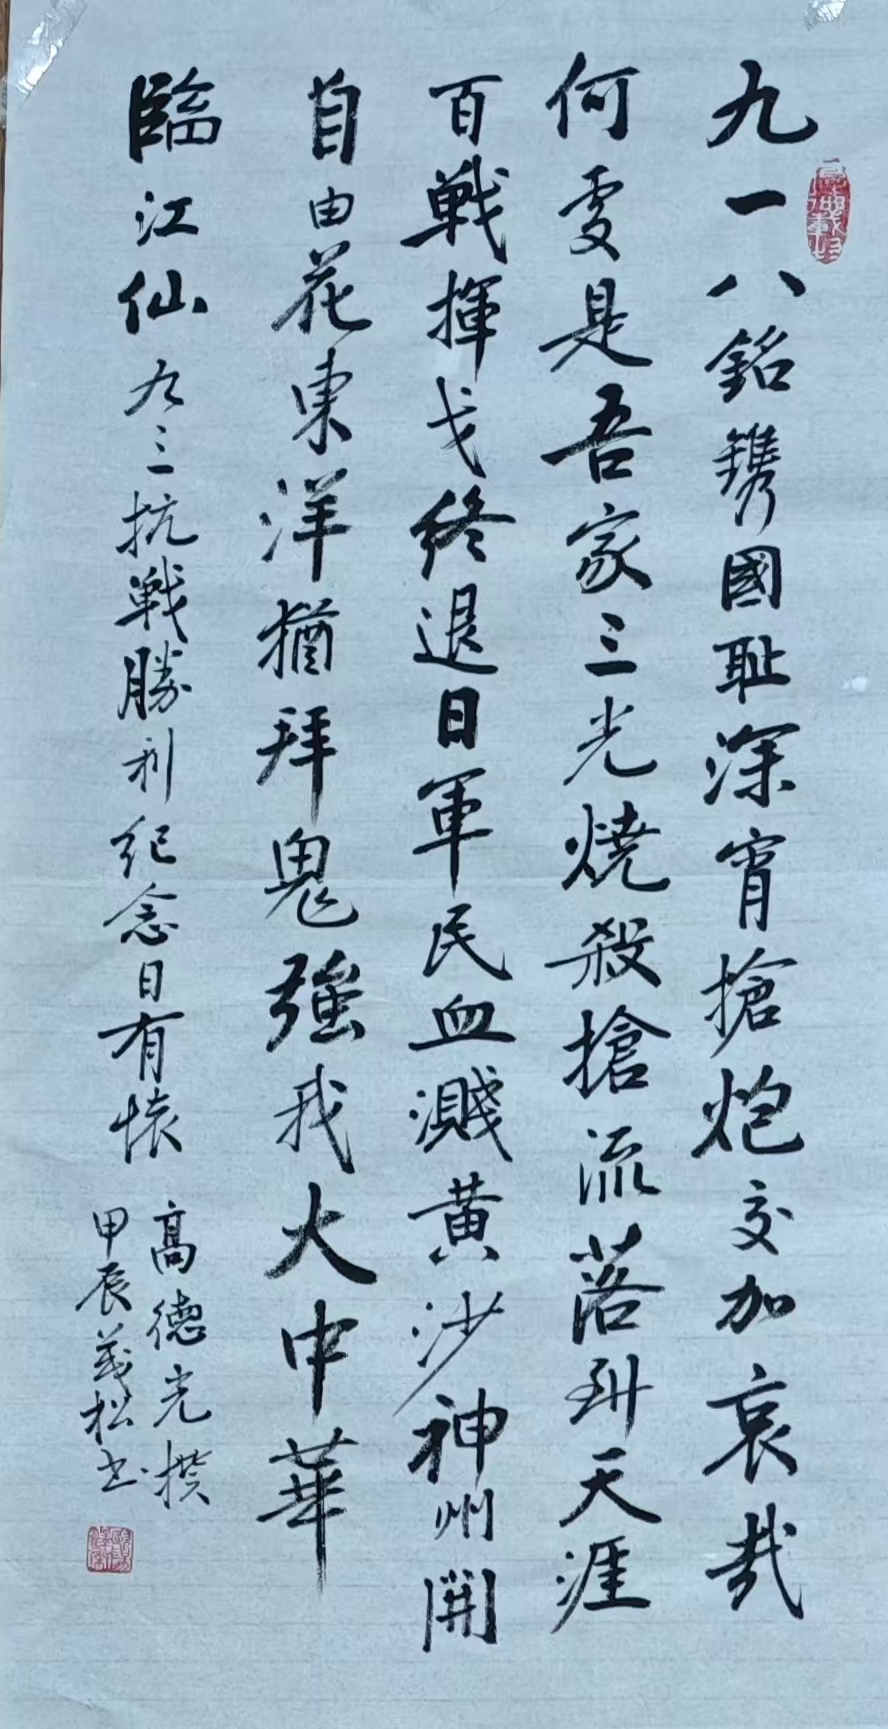 九一八銘鐫國恥深宵搶炮交加哀哉
何處是吾家三光燒殺搶流落到天涯
百戰揮戈終退日軍民血濺黃沙神州開
自由花東洋猶拜鬼強我大中華
臨江仙九三抗戰勝利紀念日有懷
高德光撰
甲辰義松書